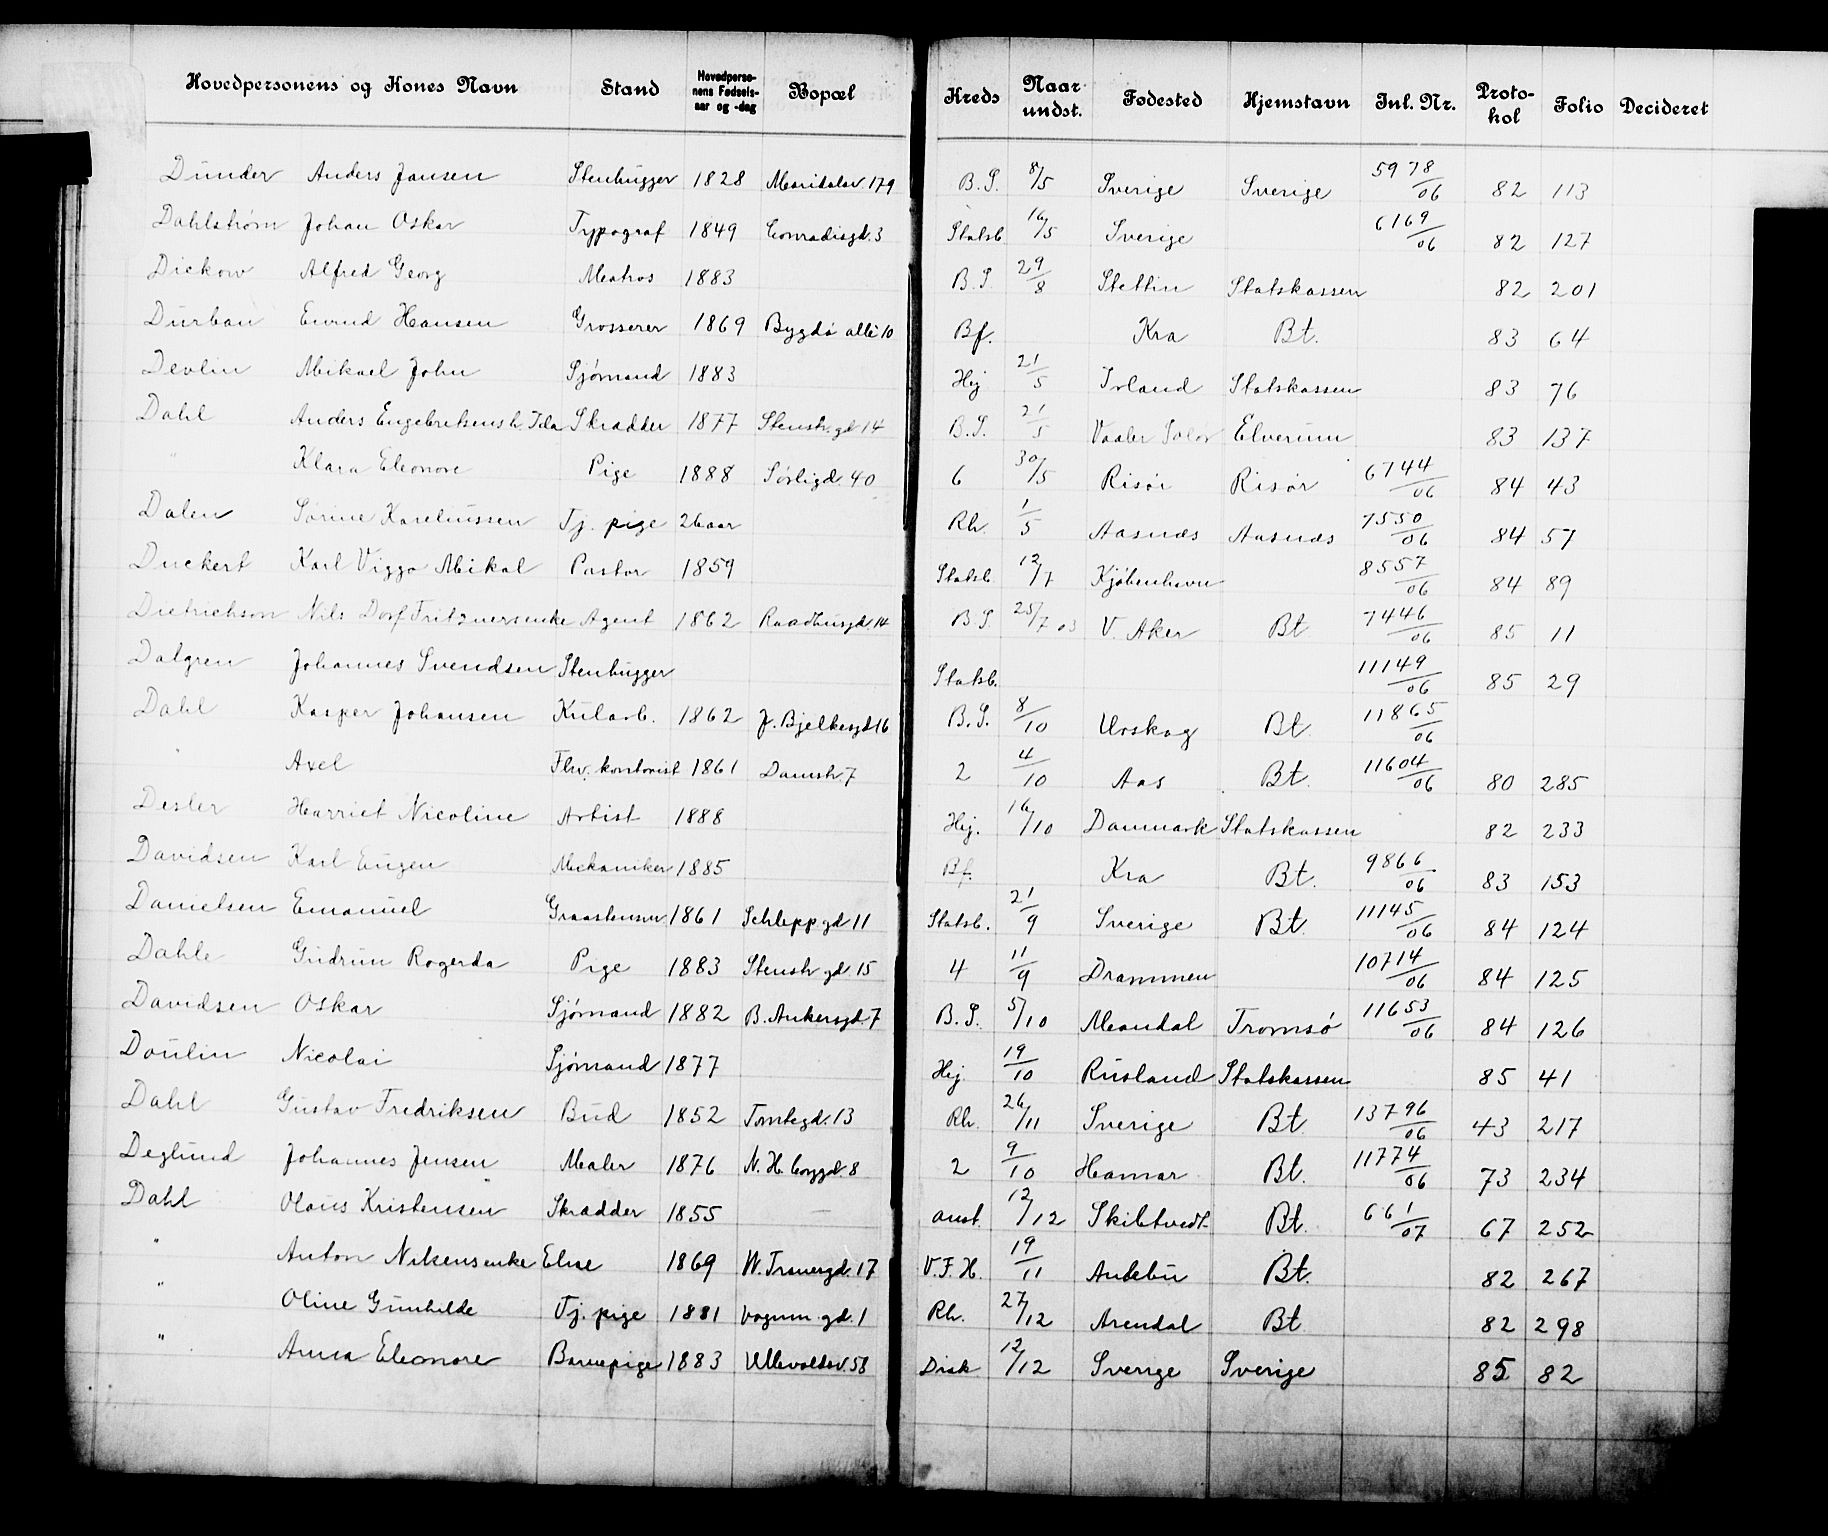 Hovedpersonens og Kones Navn Stand Hovedperso-nens Fødsels-aar og -dag Bopæl Kreds Naar undst. Fødested Hjemstavn Inl. Nr. Proto-kol Folio Decideret
Dunder Anders Jansen Stenhugger 1828 Maridalsv 179 B.S. 8/5 Sverige Sverige 5978/06 82 113
Dahlstrøm Johan Oskar Typograf 1849 Conradisgd. 3 Statsb. 16/5 Sverige 6169/06 82 127
Dickow Alfred Georg Matros 1883 B.S. 29/8 Stettin Statskassen 82 201
Durban Enrud Hansen Grosserer 1869 Bygdö allé 10 Bf. Kra Bt. 83 64
Devlin Mikael John Sjømand 1883 Hej 21/5 Irland Statskassen 83 76
Dahl Anders Engebretsens h. Ida Skradder 1877 Stenstr. gd 14 B.S. 21/5 Vaaler Solør Elverum 83 137
" Klara Eleonore Pige 1888 Sørligd. 40 6 30/5 Risör Risör 6744/06 84 43
Dalen Sørine Karelinssen Tj. pige 26 aar Rh. 1/5 Aasnæs Aasnæs 7550/06 84 57
Duckert Karl Viggo Mikal Pastor 1859 Statsb. 12/7 Kjöbenhavn 8557/06 84 89
Dietrichson Nils Dorf Fritznersenke Agent 1862 Raadhusgd. 14 B.S. 25/7 03 V. Aker Bt 7446/06 85 11
Dalgren Johannes Svendsen Stenhugger Statsb. 11149/06 85 29
Dahl Kasper Johansen Kularb. 1862 J. Bjelkesgd 16 B.S. 8/10 Urskog Bt 11865/06
" Axel Fhv. kontorist 1861 Damstr. 7 2 4/10 Aas Bt. 11604/06 80 285
Desler Harriet Nicoline Artist 1888 Hej. 16/10 Danmark Statskassen 82 233
Davidsen Karl Eugen Mekaniker 1885 Bf. Kra Bt. 9866/06 83 153
Danielsen Emanuel Graastensm 1861 Schleppgd 11 Statsb. 21/9 Sverige Bt. 11145/06 84 124
Dahle Gudrun Rogerda Pige 1883 Stenstr gd. 15 4 11/9 Drammen 10714/06 84 125
Davidsen Oskar Sjømand 1882 B. Ankersgd. 7 B.S. 5/10 Mandal Tromsø 11653/06 84 126
Doulin Nicolai Sjømand 1877 Hej. 19/10 Rusland Statskassen 85 41
Dahl Gustav Fredriksen Bud 1852 Tomtegd. 13 Rh. 26/11 Sverige Bt 13796/06 43 217
Deglund Johannes Jensen Maler 1876 N. H. 8 2 9/10 Hamar Bt. 11774/06 73 234
Dahl Olaus Kristensen Skradder 1855 — anst. 12/12 Skibtvedt Bt. 661/07 67 252
" Anton Nilsensenke Elise 1869 W. Tranesgd. 17 V.F.H. 19/11 Andebu Bt. 82 267
" Oline Gunhilde Tj. pige 1881 Vognm. gd. 1 Rh. 27/12 Arendal Bt 82 298
" Anna Eleonore Barnepige 1883 Ullevoldsv. 58 Disk 12/12 Sverige Sverige 85 82